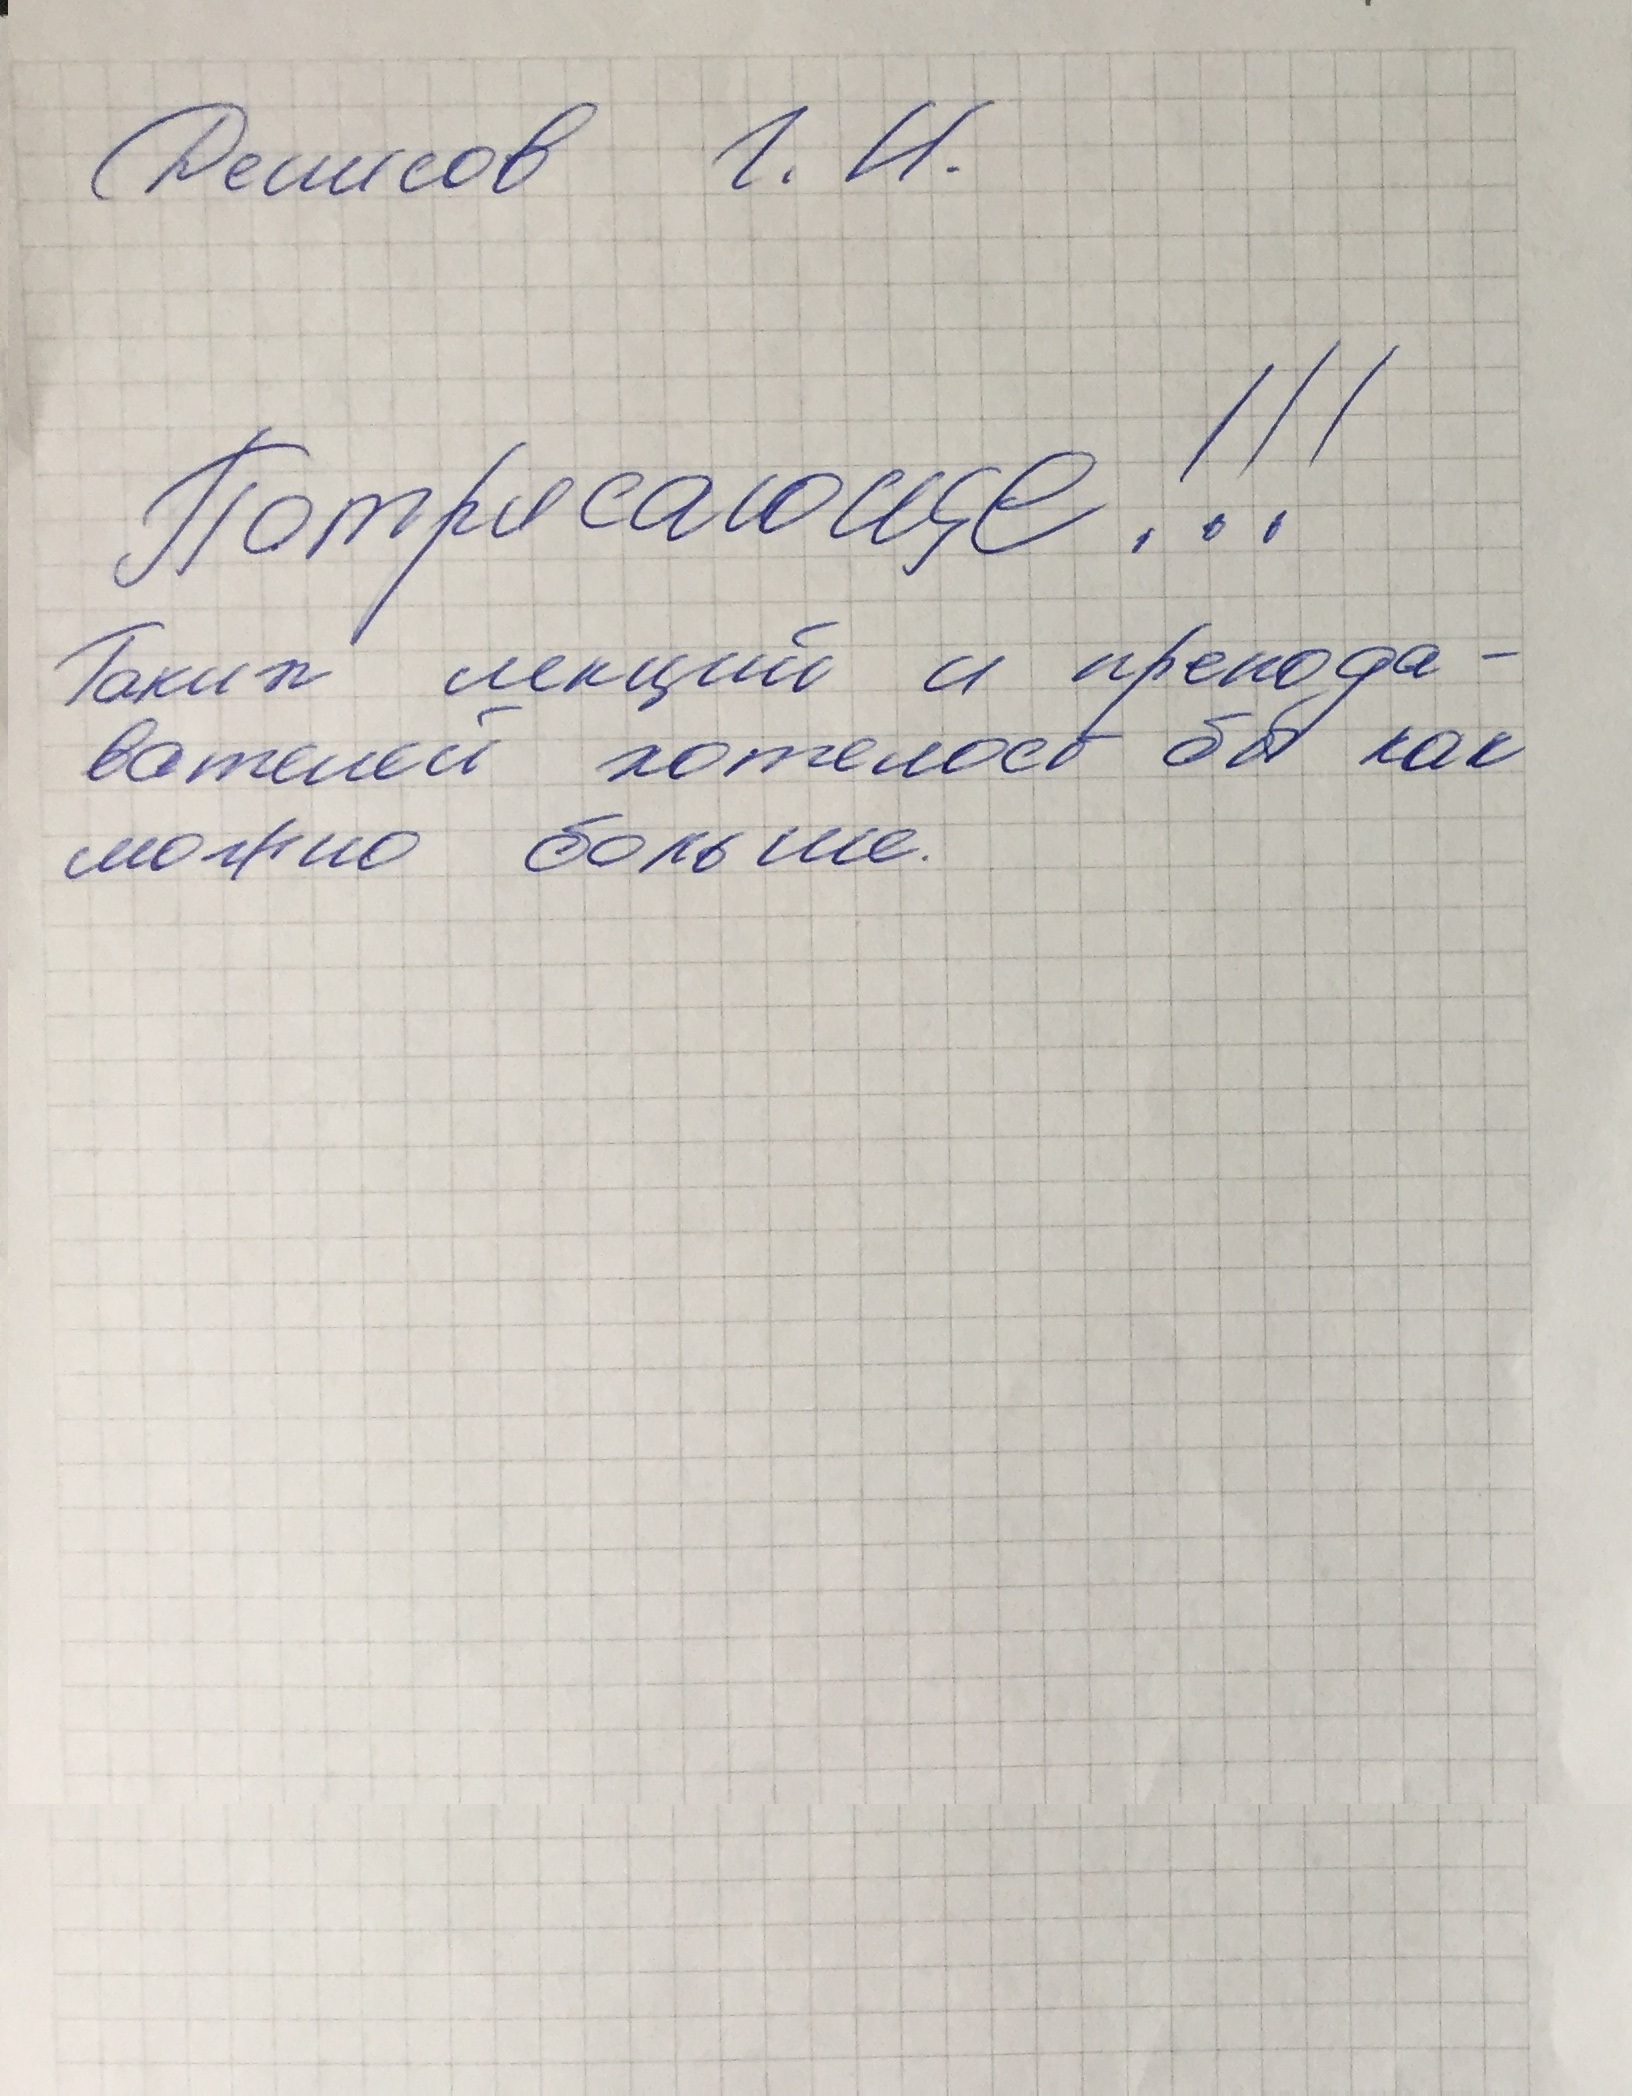 Денисов Г. Н.
Потрясающе!!!
Таких лекций и препода-
вателей хотелось бы как
можно больше.